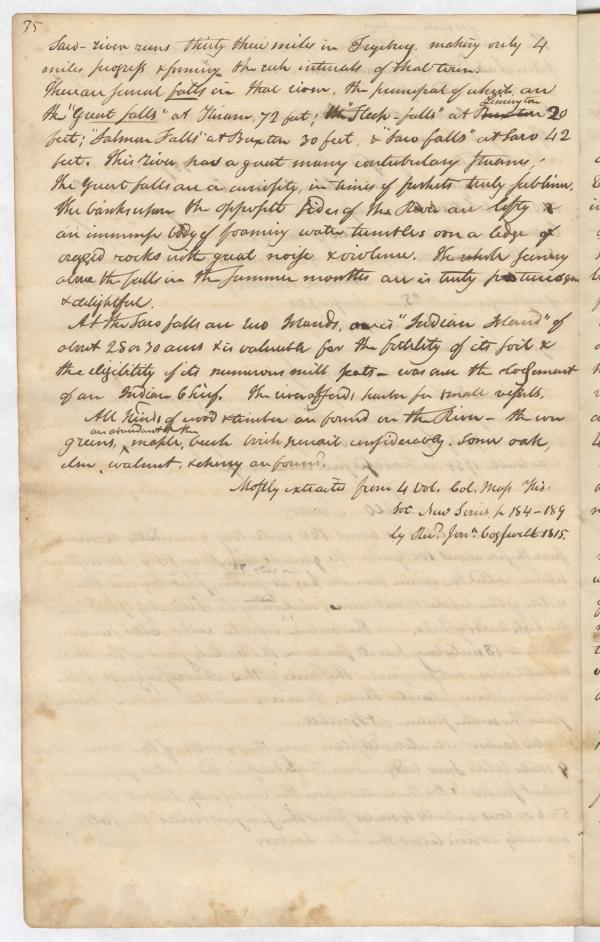 35
Saco-river runs thirty three miles in Fryeburg, making only 4
miles progress & forming the rich intervals of that town.
There are several falls in that river, the principal of which are
the "Great falls" at Hiram, 72 feet; the "Steep-falls" at Buxton Limington 20
feet; "Salmon Falls" at Buxton 30 feet, & "Saco falls" at Saco 42
feet. This River has a great many contributary Streams,
The Great falls are a curiosity, in times of freshets truly sublime.
The banks upon the opposite sides of the River are lofty &
an immense body of foaming water tumbles over a ledge of
cragged rocks with great noise & violence. The whole scenery
above the falls in the summer months are is truly picturesque
& delightful.
At the Saco falls are two Islands, one is "Indian Island" of
about 25 or 30 acres & is valuable for the fertility of its soil &
the eligibility of its numerous mill seats – was once the
of an Indian Chief. The river affords harbor for small vessels.
All kinds of wood & timber are found on the River – the ever
greens, are abundant & the maple, beech birch remain considerably. Some oak,
elm, walnut, & cherry are found.
Mostly extracted from 4 Vol. Col. Mass. His.
Soc. New Series p 184–189
by Revd. Jona. Cogswell 1815.